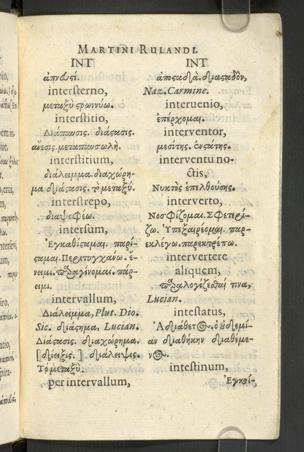 MARTINI RULANDI.
INT
ἀπνευστί.
intersterno,
μεταξὺ στρωννύω.
interstitio,
Διάπαυσις. διάστασις.
interstitium,
διάλειμμα. διαχώρη-
μα διάστασις. τὸ μεταξύ.
interstrepo,
διαψοφέω.
intersum,
Ἐγκαθίσταμαι. παρί-
σταμαι. Περιτυγχάνω.
intervallum,
Διάλειμμα, Plut. Dio.
Sic. διάστημα, Lucian.
Διάστασις. διαχώρημα.
διάλειψις.
Τὸ μεταξύ.
per intervallum,
INT
Naz. Carmine.
interuenio,
ἐπέρχομαι.
interventor,
μεσίτης.
interventu no-
ctis,
Νυκτὸς ἐπελθούσης.
interverto,
Νοσφίζομαι. Σφετερί-
ζω. Ὑπεξαιρέομαι. παρ-
εκλέγω.
intervertere
aliquem,
παραλογίζεσθαί τινα,
Lucian.
intestatus,
Ἀδιάθετος. ὁ οὐδεμί-
αν διαθήκην διαθέμε-
νος.
intestinum,
Ἐγκοί-